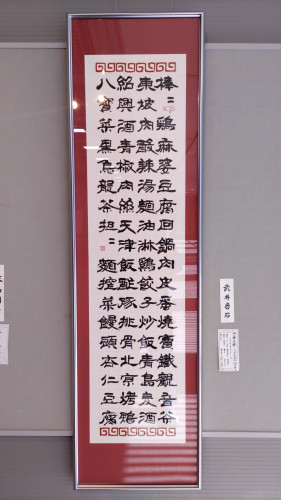 棒〻鶏麻婆豆腐回鍋肉皮蛋燒賣鐵觀音茶
東坡肉酸辣湯麵油淋鶏餃子炒飯青島麥酒
紹興酒青椒肉絲天津飯酢豚排骨北京烤鴨
八寶菜黒烏龍茶担〻麵搾菜饅頭杏仁豆腐